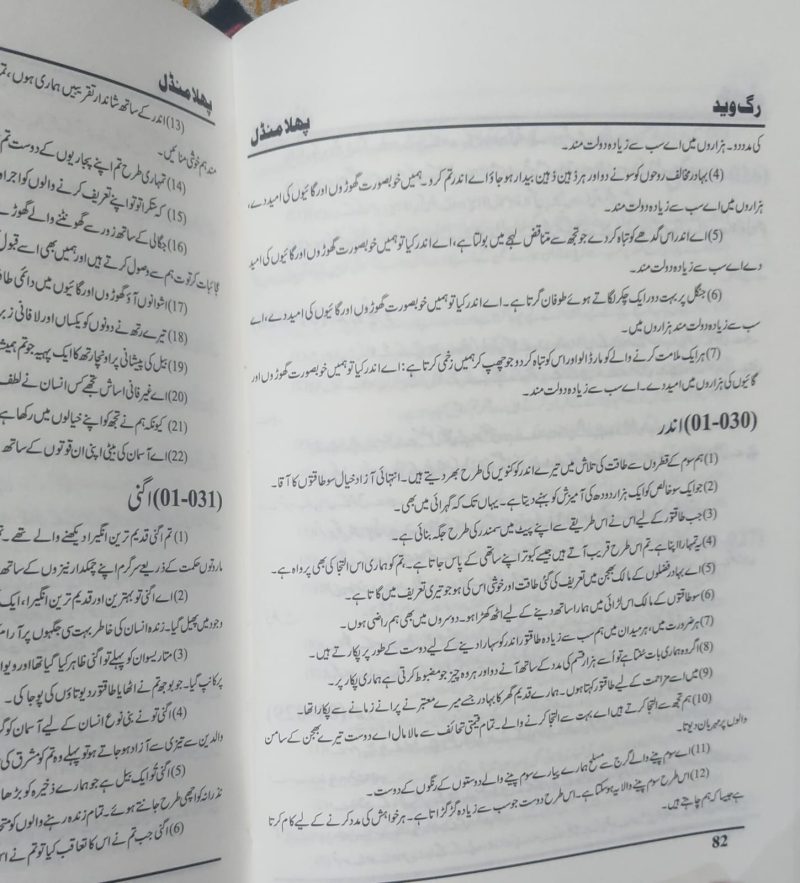 رگ وید
پھلا منڈل
کی مدد دو۔ ہزاروں میں اے سب سے زیادہ دولت مند۔
(4) بہادر مخالف روحوں کو سونے دو اور ہر ذہین ذہین بیدار ہو جاؤ اے اندر تم کرو۔ ہمیں خوبصورت گھوڑوں اور گائیوں کی امید دے،
ہزاروں میں اے سب سے زیادہ دولت مند۔
(5) اے اندر اس گدھے کو تباہ کر دے جو تجھ سے متناقض لہجے میں بولتا ہے، اے اندر کیا تو ہمیں خوبصورت گھوڑوں اور گائیوں کی امید
دے اے سب سے زیادہ دولت مند۔
(6) جنگل پر بہت دور ایک چکر لگاتے ہوئے طوفان گرتا ہے۔ اے اندر کیا تو ہمیں خوبصورت گھوڑوں اور گائیوں کی امید دے، اے
سب سے زیادہ دولت مند ہزاروں میں۔
(7) ہر ایک ملامت کرنے والے کو مار ڈالو اور اس کو تباہ کر دو جو چھپ کر ہمیں زخمی کرتا ہے: اے اندر کیا تو ہمیں خوبصورت گھوڑوں اور
گائیوں کی ہزاروں میں امید دے۔ اے سب سے زیادہ دولت مند۔
(01-030) اندر
(1) ہم سوم کے قطروں سے طاقت کی تلاش میں تیرے اندر کو کنویں کی طرح بھر دیتے ہیں۔ انتہائی آزاد خیال سو طاقتوں کا آقا۔
(2) جو ایک سو خالص کو ایک ہزار دودھ کی آمیزش کو بہنے دیتا ہے۔ یہاں تک کہ گہرائی میں بھی۔
(3) جب طاقتور کے لیے اس نے اس طریقے سے اپنے پیٹ میں سمندر کی طرح جگہ بنائی ہے۔
(4) یہ تمہارا اپنا ہے۔ تم اس طرح قریب آتے ہیں جیسے کبوتر اپنے ساتھی کے پاس جاتا ہے۔ تم کو ہماری اس التجا کی بھی پرواہ ہے۔
(5) اے بہادر فضلوں کے مالک بھجن میں تعریف کی گئی طاقت اور خوشی اس کی ہو جو تیری تعریف میں گاتا ہے۔
(6) سو طاقتوں کے مالک اس لڑائی میں ہمارا ساتھ دینے کے لیے اٹھ کھڑا ہو۔ دوسروں میں بھی ہم راضی ہوں۔
(7) ہر ضرورت میں، ہر میدان میں ہم سب سے زیادہ طاقتور اندر کو سہارا دینے کے لیے دوست کے طور پر پکارتے ہیں۔
(8) اگر وہ ہماری بات سنتا ہے تو اُسے ہزار قسم کی مدد کے ساتھ آنے دو اور ہر وہ چیز جو مضبوط کرتی ہے ہماری پکار پر۔
(9) میں اسے مزاحمت کے لیے طاقتور کہتا ہوں۔ ہمارے قدیم گھر کا بہادر جسے میرے معتبر نے پرانے زمانے سے پکارا تھا۔
(10) ہم تجھ سے التجا کرتے ہیں اے بہت سے التجا کرنے والے۔ تمام قیمتی تحائف سے مالا مال اے دوست تیرے بھجن کے سامن
والوں پر مہربان دیوتا۔
(11) اے سوم پینے والے گرج سے مسلح ہمارے پیارے سوم پینے والے دوستوں کے رنگوں کے دوست۔
(12) اس طرح سوم پینے والا یہ ہو سکتا ہے۔ اس طرح دوست جو سب سے زیادہ گڑگڑاتا ہے۔ ہر خواہش کی مدد کرنے کے لیے کام کرتا
ہے جیسا کہ ہم چاہتے ہیں۔
82
پھلا منڈل
(13) اندر کے ساتھ شاندار تقریبیں ہماری ہوں، تم
مند ہم خوشی منائیں۔
(14) تمہاری طرح تم اپنے پجاریوں کے دوست تم
(15) کہ شکرا تو تو اپنے تعریف کرنے والوں کو اجرا
(16) جگالی کے ساتھ زور سے گھونٹنے والے گھوڑے
عجائبات کر توت ہم سے وصول کرتے ہیں اور ہمیں بھی اسے قبول
(17) اشوانوں آؤ گھوڑوں اور گائیوں میں دائمی طا
(18) تیرے رتھ نے دونوں کو یکساں اور لافانی زبر
(19) بیل کی پیشانی پر اونچا رتھ کا ایک پہیہ جو تم ہمیش
(20) اے غیر فانی اساش تجھے کس انسان نے لطف
(21) کیونکہ ہم نے تجھ کو اپنے خیالوں میں رکھا ہے
(22) اے آسمان کی بیٹی اپنی ان قوتوں کے ساتھ
(01-031) اگنی
(1) تم اگنی قدیم ترین انگیرا دیکھنے والے تھے۔ تم
ماروتوں حکمت کے ذریعے سرگرم اپنے چمکدار نیزوں کے ساتھ
(2) اے اگنی تو بہترین اور قدیم ترین انگیرا، ایک
وجود میں پھیل گیا۔ زندہ انسان کی خاطر بہت سی جگہوں پر آرام
(3) متاریسوان کو پہلے تو اگنی ظاہر کیا گیا تھا اور ویوا
پر کانپ گیا۔ جو بوجھ تم نے اٹھایا طاقتور دیوتاؤں کی پوجا کی۔
(4) اگنی تو نے بنی نوع انسان کے لیے آسمان کو گر
والدین سے تیزی سے آزاد ہو جاتے ہو تو پہلے وہ تم کو مشرق کی
(5) اگنی تُو ایک بیل ہے جو ہمارے ذخیرہ کو بڑھا
نذرانہ کو اچھی طرح جانتے ہوئے۔ تمام زندہ رہنے والوں کو متح
(6) اگنی جب تم نے اس کا تعاقب کیا تو تم نے اس